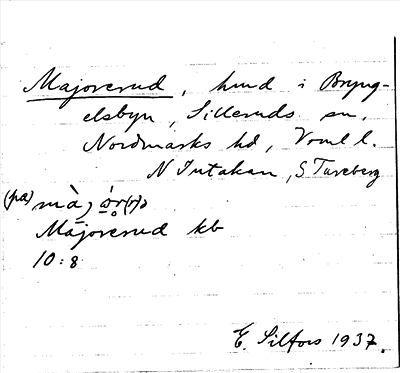 Majorerud, hmd i Bryng-
elsbyn, Silleruds sn,
Nordmarks hd, Vrml l.
N Intakan, S Tareberg
(på) mà,
Majorerud kb
10:8
E. Silfors 1937.